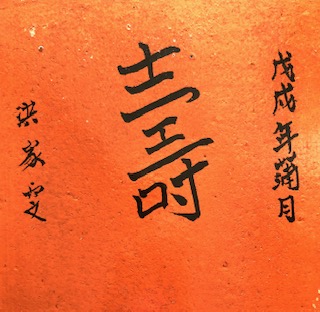 戊戌年蒲月
壽
洪家